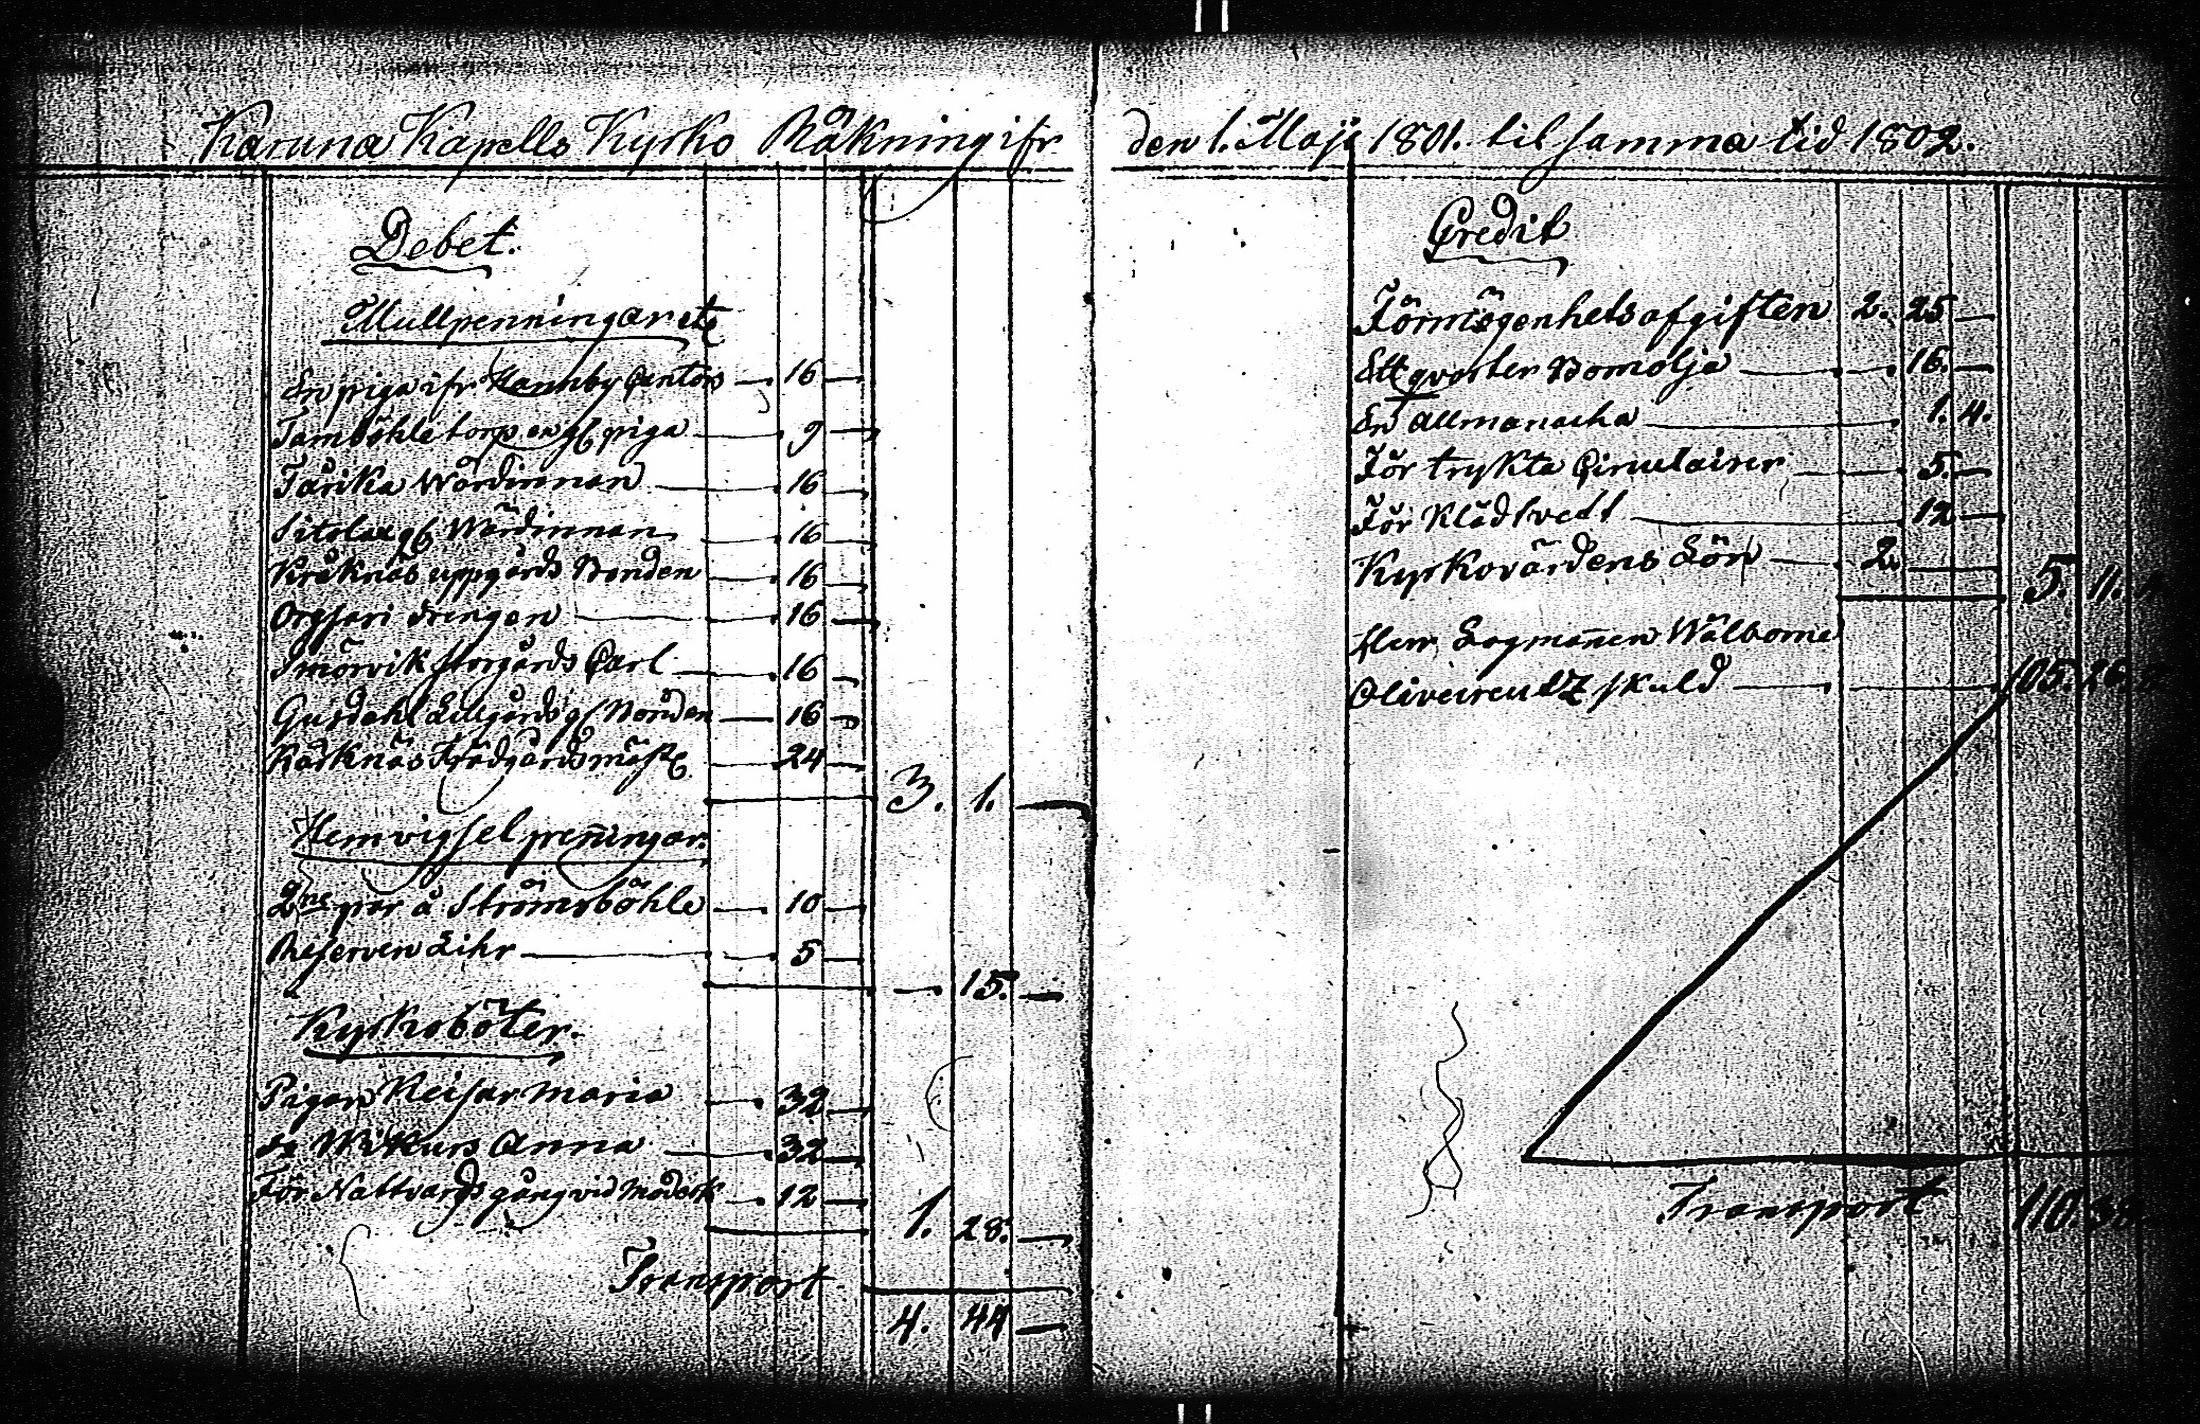 Karuna Kapells Kyrko Räkning ifr den 1. Maji 1801. til samma tid 1802.
Debet.
Mullpenningar etc
En piga ifr. Cantors — 16 —
torp piga — 9 —
Tårika Wärdinnan — 16 —
Wärdinnan — 16 —
Kråknäs uppgårds Bonden — 16 —
drengen — 16 —
Smörvik storgårds Carl — 16 —
Lillgårds — 16 —
Trädgårdsmäst — 24 —
3. 1. —
Hemvigsel penningar.
2ne par å Strömsböhle — 10 —
Reserven Lihr — 5 —
— 15. —
Kyrkoböter.
Pigan Keisar Maria — 32 —
do Anna — 32 —
För Nattvards gång vid Moderk — 12 —
1. 28. —
Transport
4. 44 —
Credit
Förmögenhets afgiften 2. 25 —
Ett qvarter Bomolja — 16. —
En allmanacka — 1. 4.
För trykta Circulairer — 5. —
För Klädtvett — 12 —
Kyrkovärdens Lön — 2. —
5. 11.
Herr Lagmannen Wälborne
Oliveireutz skuld — 105. 26
Transport 110.